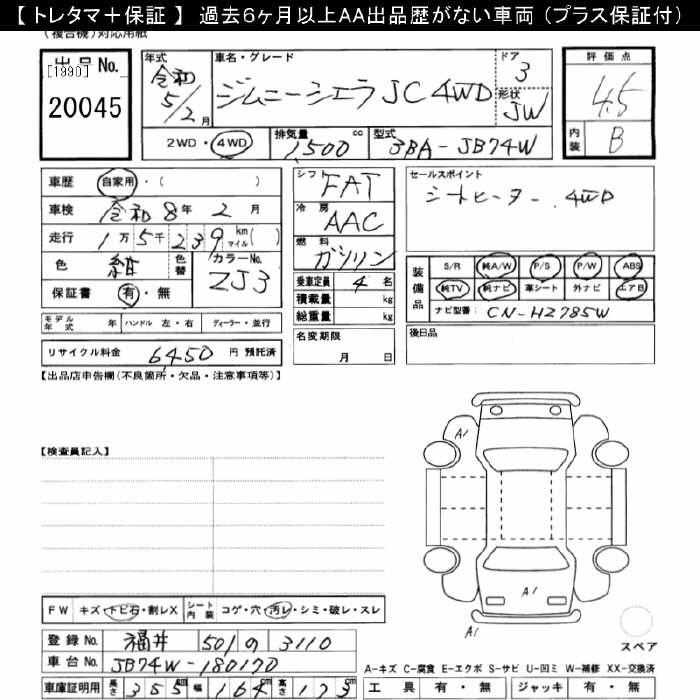 【 トレタマ＋保証 】 過去6ヶ月以上AA出品歴がない車両 (プラス保証付)
(複合機)対応用紙
出品No.
[1990]
20045
年式 令和 5/2月
車名・グレード ジムニーシエラ JC 4WD
ドア 3
形状 JW
評価点 4.5
内装 B
2WD・4WD
排気量 1,500 cc
型式 3BA-JB74W
車歴 自家用・( )
車検 令和 8年 2月
走行 1万5千239 km マイル ( )
色 紺
色替
カラーNo. ZJ3
保証書 有・無
シフト FAT
冷房 AAC
燃料 ガソリン
乗車定員 4 名
積載量 kg
総重量 kg
セールスポイント
シートヒーター .4WD
装備品
S/R 純A/W P/S P/W ABS
純TV 純ナビ 革シート 外ナビ エアB
ナビ型番: CN-HZ785W
モデル年式 年 ハンドル 左・右 ディーラー・並行
名変期限 月 日
後日品
リサイクル料金 6450 円 預託済
【出品店申告欄(不良箇所・欠品・注意事項等)】
【検査員記入】
A1
A1
A1
FW キズ・トビ石・割レX
シート内装 コゲ・穴・汚レ・シミ・破レ・スレ
スペア
登録No. 福井 501 の 3110
車台No. JB74W-180170
A-キズ C-腐食 E-エクボ S-サビ U-凹ミ W-補修 XX-交換済
車庫証明用 長さ 355 cm 幅 164 cm 高さ 173 cm
工具 有・無 ジャッキ 有・無